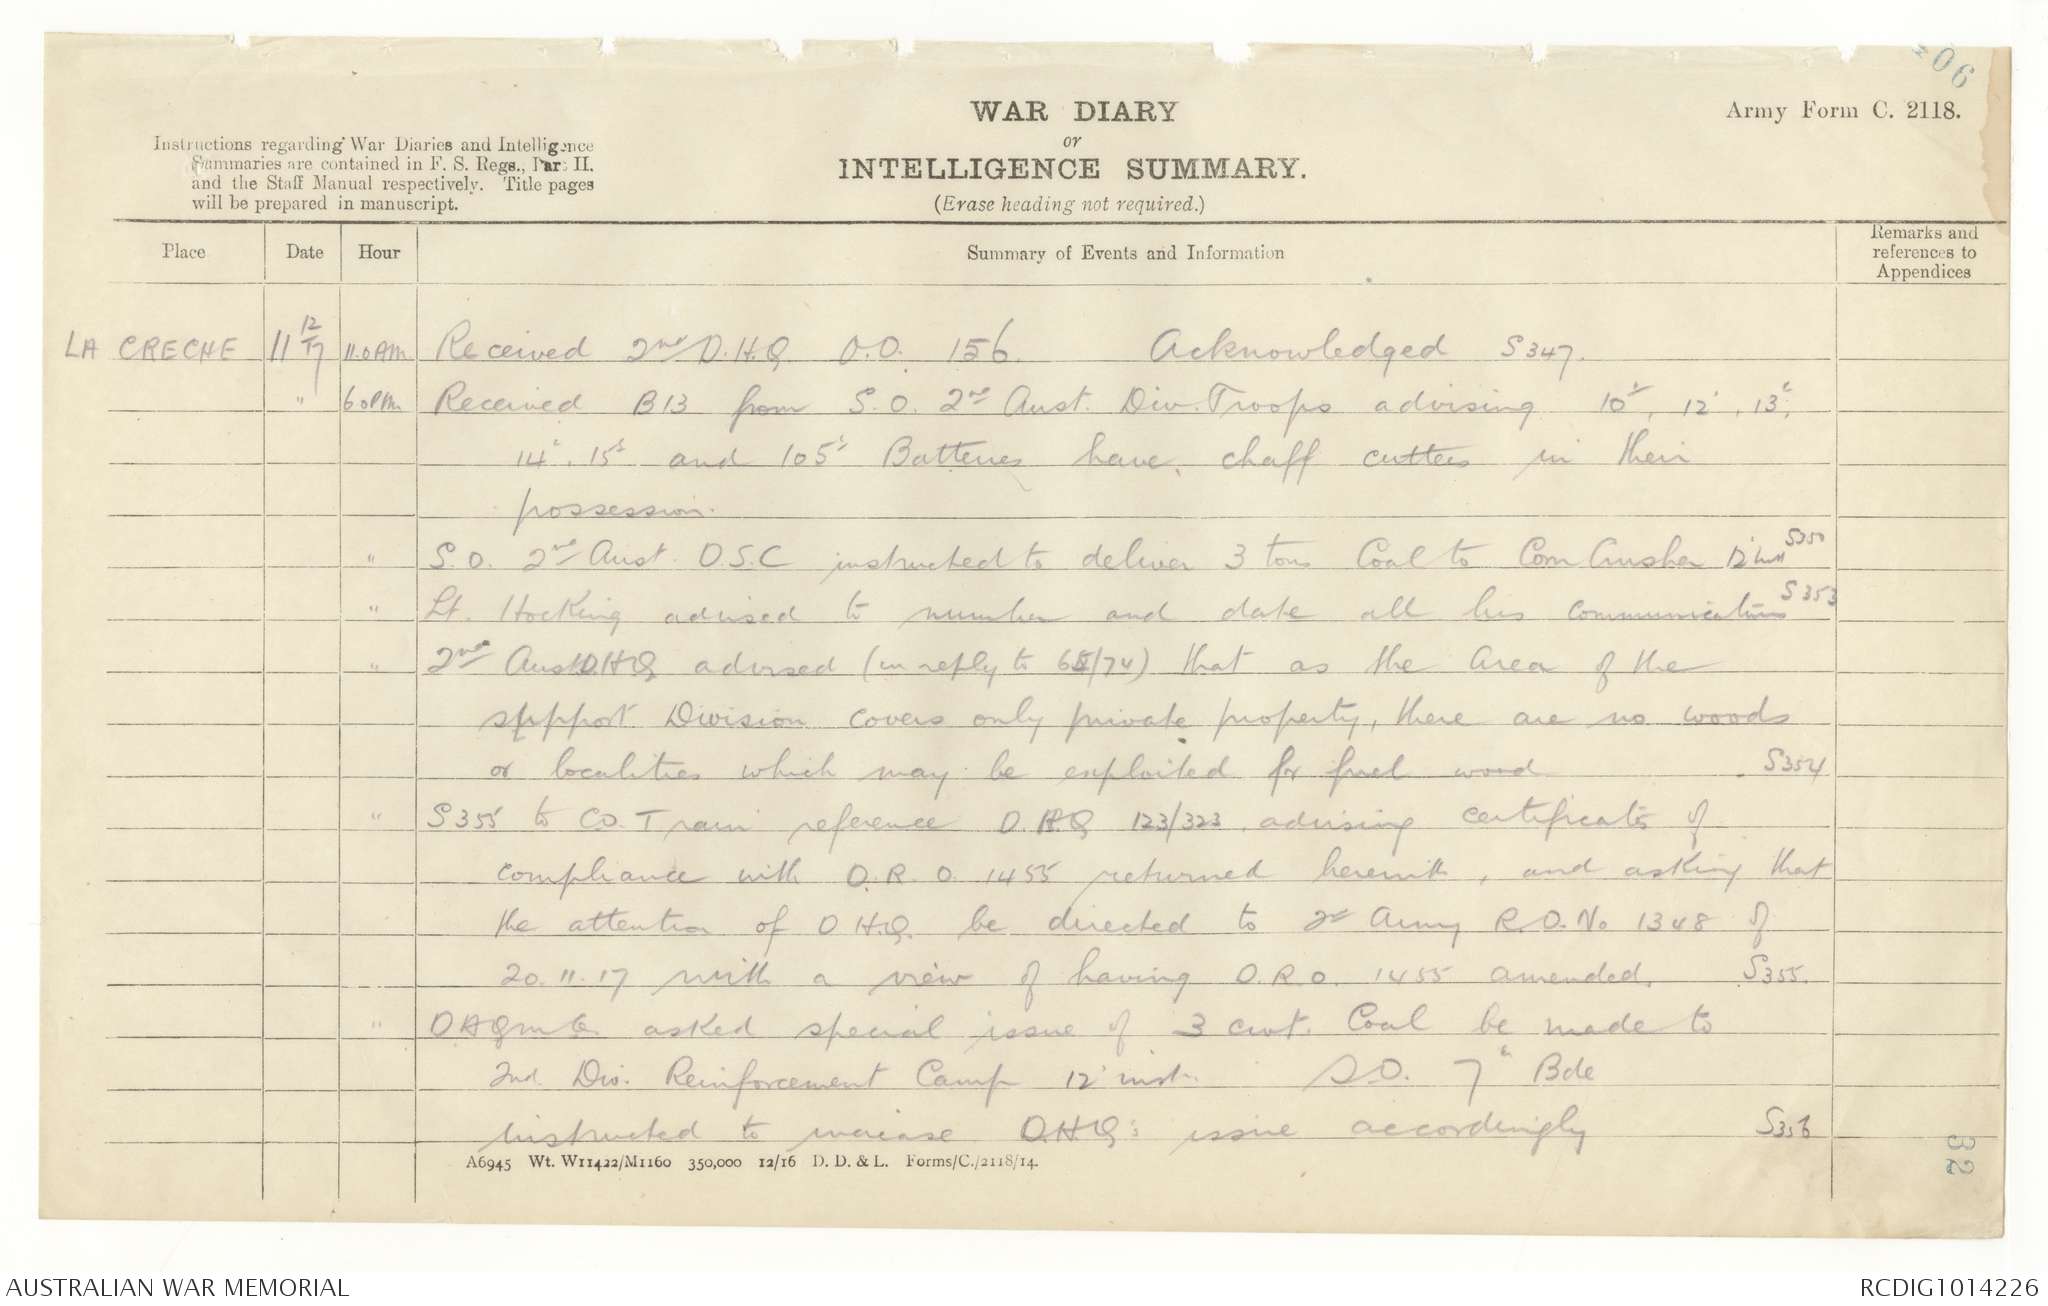 06
WAR DIARY
or
INTELLIGENCE SUMMARY.
(Erase heading not required.)
Army Form C. 2118.
Instructions regarding War Diaries and Intelligence
Summaries are contained in F. S. Regs., Part II.
and the Staff Manual respectively. Title pages
will be prepared in manuscript.
Place Date Hour Summary of Events and Information Remarks and
references to
Appendices
LA CRECHE 11 12/17 11.0 AM Received 2nd D.H.Q O.O. 156. Acknowledged S347.
" 6 0PM. Received B13 from S.O. 2nd Aust. Div. Troops advising 10th, 12th, 13th,
14th, 15th and 105th Batteries have chaff cutters in their
possession.
" S.O. 2nd Aust. D.S.C instructed to deliver 3 tons Coal to Corn Crusher 12th inst S350
" Lt. Hocking advised to number and date all his communications S353
" 2nd Aust D.H.Q advised (in reply to /74) that as the area of the
support Division covers only private property, there are no woods
or localities which may be exploited for fuel wood. S354
" S355 to C.O. Train reference D.H.Q 123/323 advising certificates of
compliance with D.R.O. 1455 returned herewith, and asking that
the attention of D.H.Q. be directed to 2nd Army R.O. No 1348 of
20.11.17 with a view of having D.R.O. 1455 amended. S355.
" D.A.Q.M.G. asked special issue of 3 cwt. Coal be made to
2nd Div. Reinforcement Camp 12th inst. S.O. 7th Bde
instructed to increase D.H.Q's issue accordingly S356
A6945 Wt. W11422/M1160 350,000 12/16 D. D. & L. Forms/C./2118/14.
32
AUSTRALIAN WAR MEMORIAL
RCDIG1014226